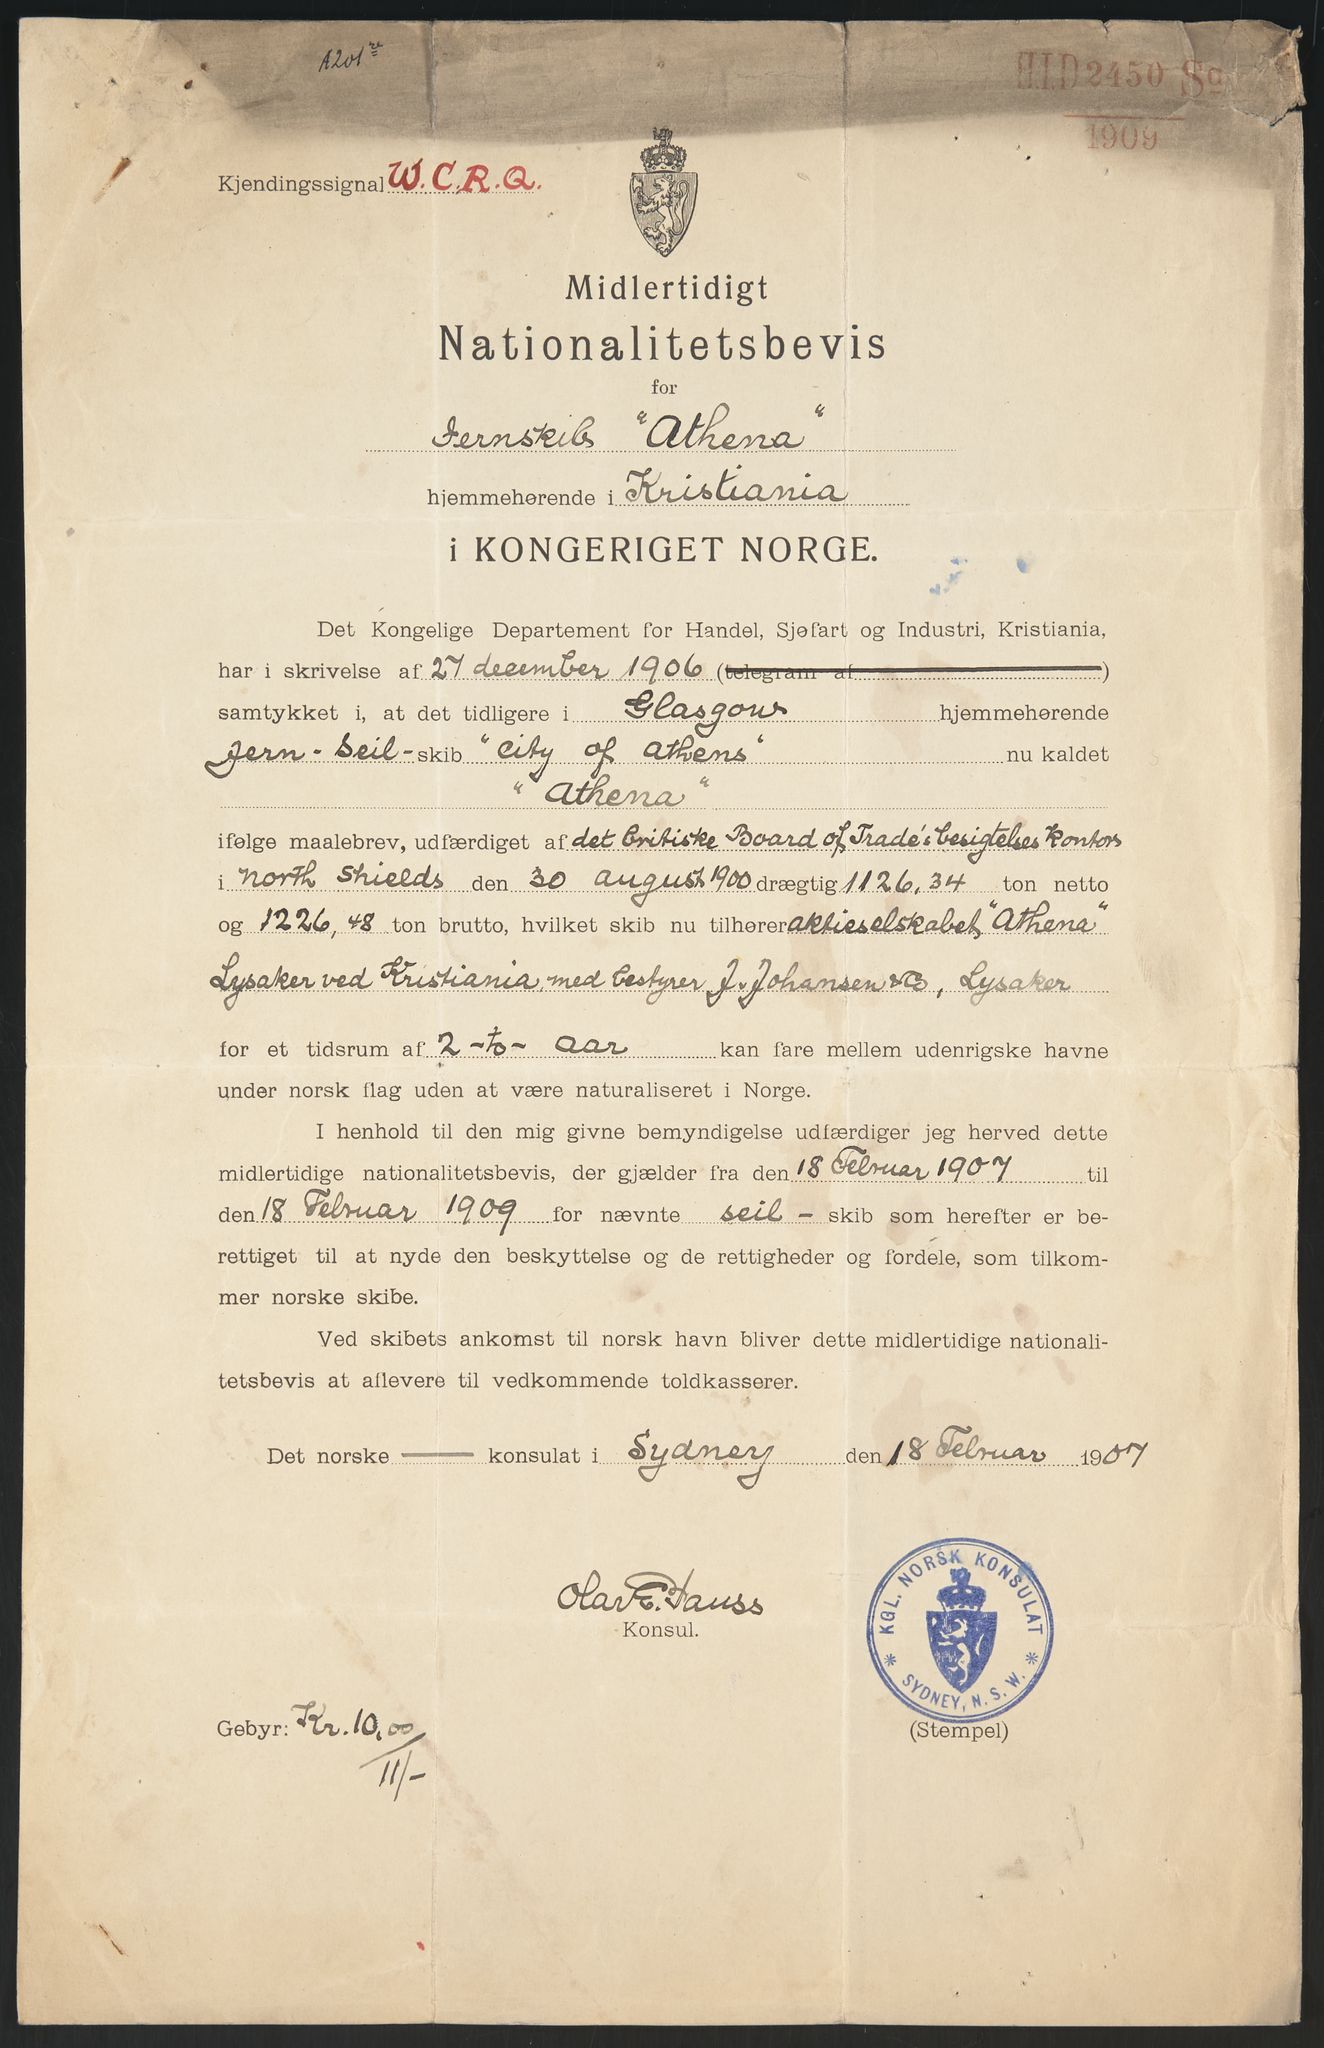 A201
H.I.D 2450 Sa
1909
Kjendingssignal W.C.R.Q.
Midlertidigt
Nationalitetsbevis
for
Jernskib "Athena"
hjemmehørende i Kristiania
i KONGERIGET NORGE.
Det Kongelige Departement for Handel, Sjøfart og Industri, Kristiania,
har i skrivelse af 27 december 1906 (telegram af )
samtykket i, at det tidligere i Glasgow hjemmehørende
Jern-Seil-skib "City of Athens" nu kaldet
"Athena"
ifølge maalebrev, udfærdiget af det britiske Board of Trade's besigtelses kontors
i North Shields den 30 august 1900 drægtig 1126,34 ton netto
og 1226,48 ton brutto, hvilket skib nu tilhører aktieselskabet "Athena"
Lysaker ved Kristiania, med bestyrer J. Johansen & Co, Lysaker
for et tidsrum af 2 -to- aar kan fare mellem udenrigske havne
under norsk flag uden at være naturaliseret i Norge.
I henhold til den mig givne bemyndigelse udfærdiger jeg herved dette
midlertidige nationalitetsbevis, der gjælder fra den 18 Februar 1907 til
den 18 Februar 1909 for nævnte seil - skib som herefter er be-
rettiget til at nyde den beskyttelse og de rettigheder og fordele, som tilkom-
mer norske skibe.
Ved skibets ankomst til norsk havn bliver dette midlertidige nationali-
tetsbevis at aflevere til vedkommende toldkasserer.
Det norske — konsulat i Sydney den 18 Februar 1907
Olav E. Pauss
Konsul.
KGL. NORSK KONSULAT
* SYDNEY, N.S.W. *
(Stempel)
Gebyr: Kr. 10,00
11/-